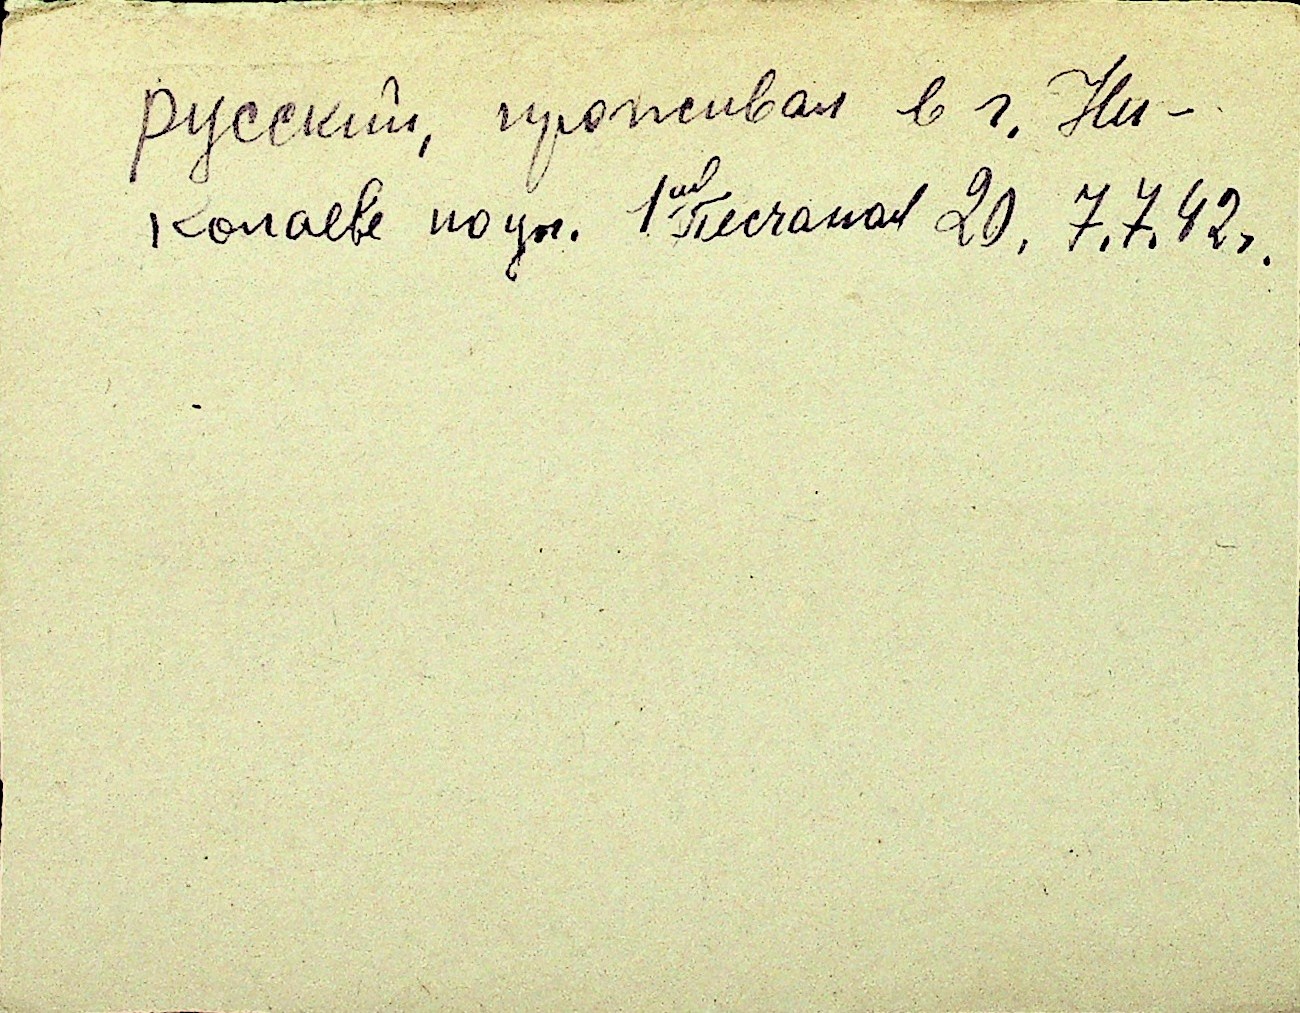 русский, проживал в г. Ни-
колаеве по ул. 1ая Песчаная 20, 7.7.42г.